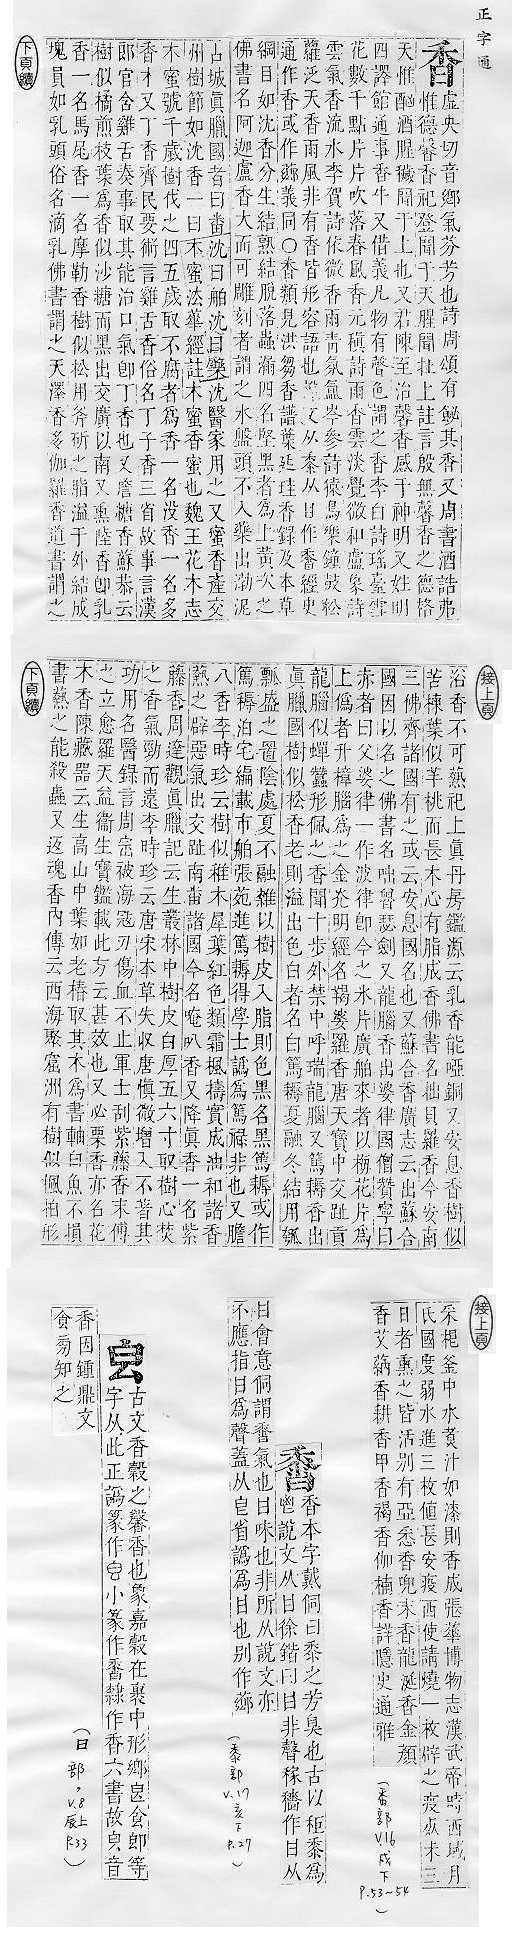 正字通
香
虛央切音鄉氣芬芳也詩周頌有飶其香又周書酒誥弗
惟德馨香祀登聞于天腥聞在上註言殷無馨香之德格
天惟酗酒腥穢聞于上也又君陳至治馨香感于神明又姓明
四譯館通事香牛又借義凡物有聲色謂之香李白詩瑤臺雪
花數千點片片吹落春風香元稹詩雨香雲淡覺微和盧象詩
雲氣香流水李賀詩依微香雨青氛氳岑參詩猿鳥樂鐘鼓松
蘿泛天香雨風非有香皆形容語也說文从黍从甘作香經史
通作香或作薌義同○香類見洪芻香譜葉廷珪香錄及本草
綱目如沈香分生結熟結脫落蟲漏四名堅黑者為上黃次之
佛書名阿迦盧香大而可雕刻者謂之水盤頭不入藥出渤泥
占城眞臘國者曰番沈曰舶沈曰藥沈醫家用之又蜜香產交
州樹節如沈香一曰木蜜法華經註木蜜香蜜也魏王花木志
木蜜號千歲樹伐之四五歲取不腐者為香一名沒香一名多
香木又丁香齊民要術言雞舌香俗名丁子香三省故事言漢
郎官含雞舌奏事取其能治口氣卽丁香也又詹糖香蘇恭云
樹似橘煎枝葉為香似沙糖而黑出交廣以南又熏陸香卽乳
香一名馬尾香一名摩勒香樹似松用斧斫之脂溢于外結成
塊員如乳頭俗名滴乳佛書謂之天澤香多伽羅香道書謂之
下頁續
接上頁
浴香不可熱祀上眞丹房鑑源云乳香能啞銅又安息香樹似
苦楝葉似羊桃而長木心有脂成香佛書名拙貝羅香今安南
三佛齊諸國有之或云安息國名也又蘇合香廣志云出蘇合
國因以名之佛書名咄嚕瑟劍又龍腦香出婆律國僧贊寧曰
赤者曰父婆律一作波律卽今之氷片廣舶來者以梅花片為
上僞者升樟腦為之金光明經名羯婆羅香唐天寶中交趾貢
龍腦似蟬蠶形佩之香聞十步外禁中呼瑞龍腦又篤耨香出
眞臘國樹似松香老則溢出色白者名白篤耨夏融冬結用瓠
瓢盛之置陰處夏不融雜以樹皮入脂則色黑名黑篤耨或作
篤耨泊宅編載市舶張苑進篤耨得學士譌為篤祿非也又膽
八香李時珍云樹似稚木犀葉紅色類霜楓擣實成油和諸香
爇之辟惡氣出交趾南番諸國今名唵叭香又降眞香一名紫
藤香周達觀眞臘記云生叢林中樹皮白厚五六寸取樹心焚
之香氣勁而遠李時珍云唐宋本草失收唐愼微增入不著其
功用名醫錄言周崈被海寇刃傷血不止軍士刮紫藤香末傅
之立愈羅天益衛生寶鑑載此方云甚效也又必栗香亦名花
木香陳藏器云生高山中葉如老椿取其木為書軸白魚不損
書爇之能殺蟲又返魂香內傳云西海聚窟洲有樹似楓柏形
下頁續
接上頁
采根釜中水煑汁如漆則香成張華博物志漢武帝時西域月
氏國度弱水進三枚値長安疫西使請燒一枚辟之疫死未三
日者熏之皆活別有亞悉香兜末香龍涎香金顏
香艾蒳香耕香甲香褐香伽楠香詳隱史通雅
(香部 V.16 戌下 P.53~54)
香
香本字戴侗曰黍之芳臭也古以秬黍為
鬯說文从甘徐鍇曰甘非聲稼穡作甘从
甘會意侗謂香氣也甘味也非所从說文亦
不應指甘為聲蓋从皀省譌為甘也別作薌
(黍部 V.17 亥下 P.27)
皀
古文香穀之馨香也象嘉穀在裹中形鄉皀食卽等
字从此正譌篆作皀小篆作香隸作香六書故皀音
香因鍾鼎文
食旁知之
(日部, V.8 辰上 P.33)